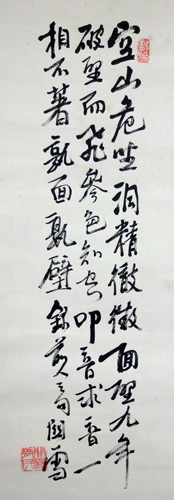 空山危坐洞精徹微面壁九年
破壁而飛參色知空叩音求香一
相不著孰面孰壁錄句關雪